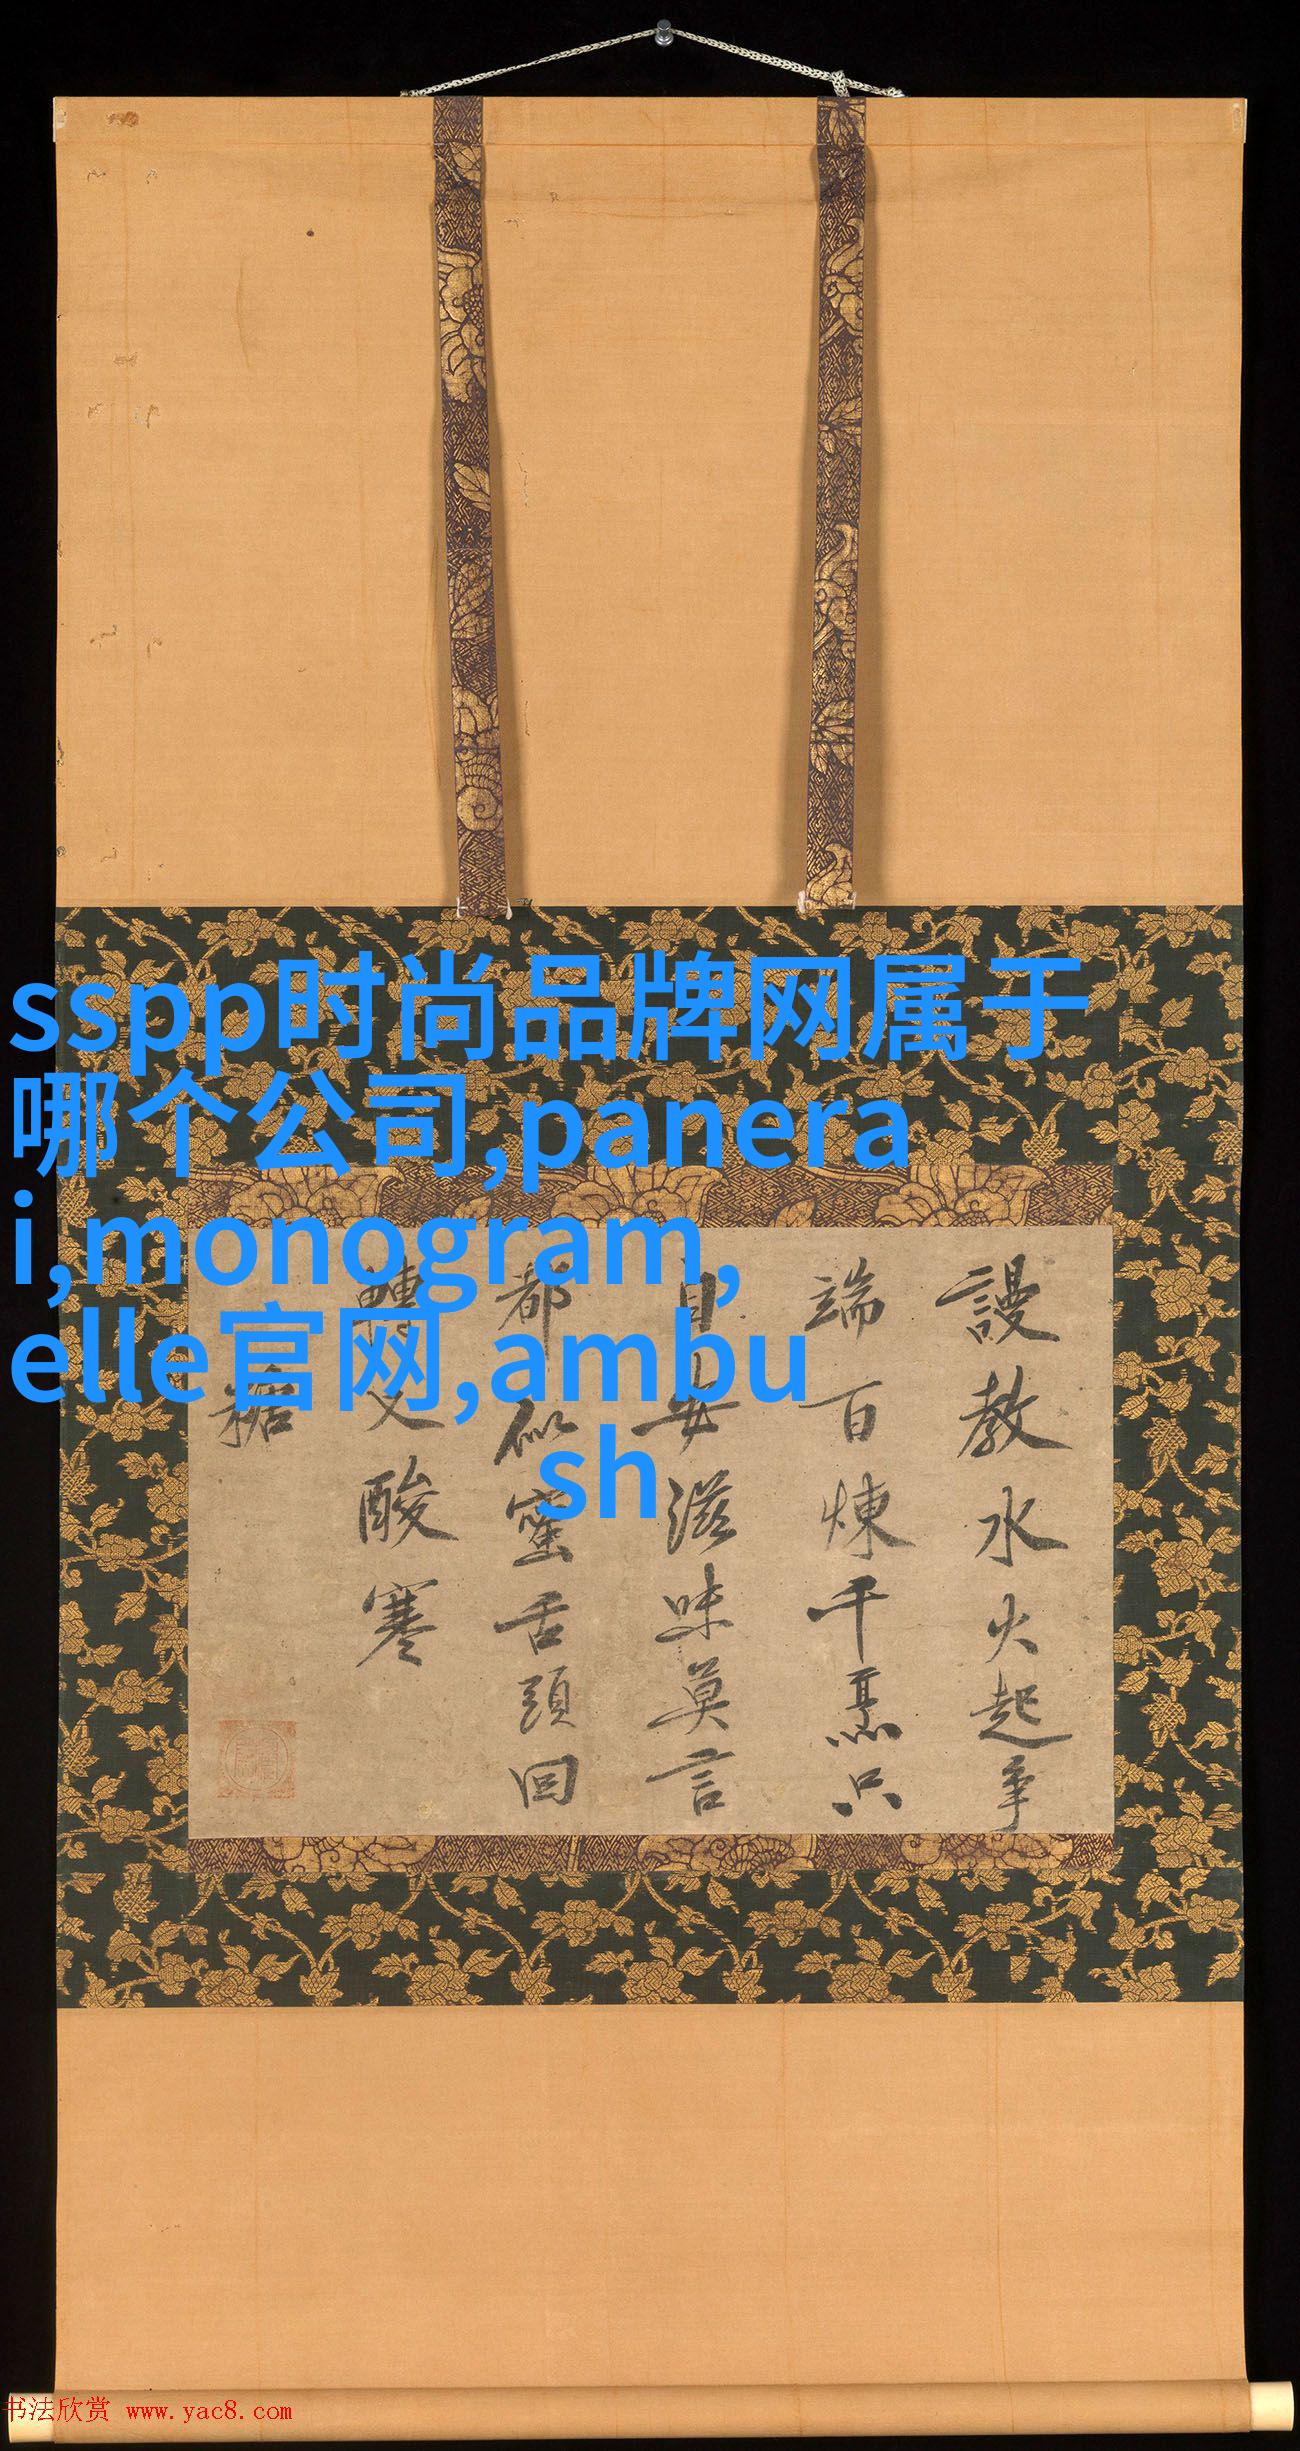 sspp时尚品牌网属于
哪个公司,panera
i,monogram,
elle官网,ambu
sh
謾教水火起爭
端百煉千烹只
自安滋味莫言
都似蜜舌頭回
轉又酸寒
糖
书法欣赏 www.yac8.com